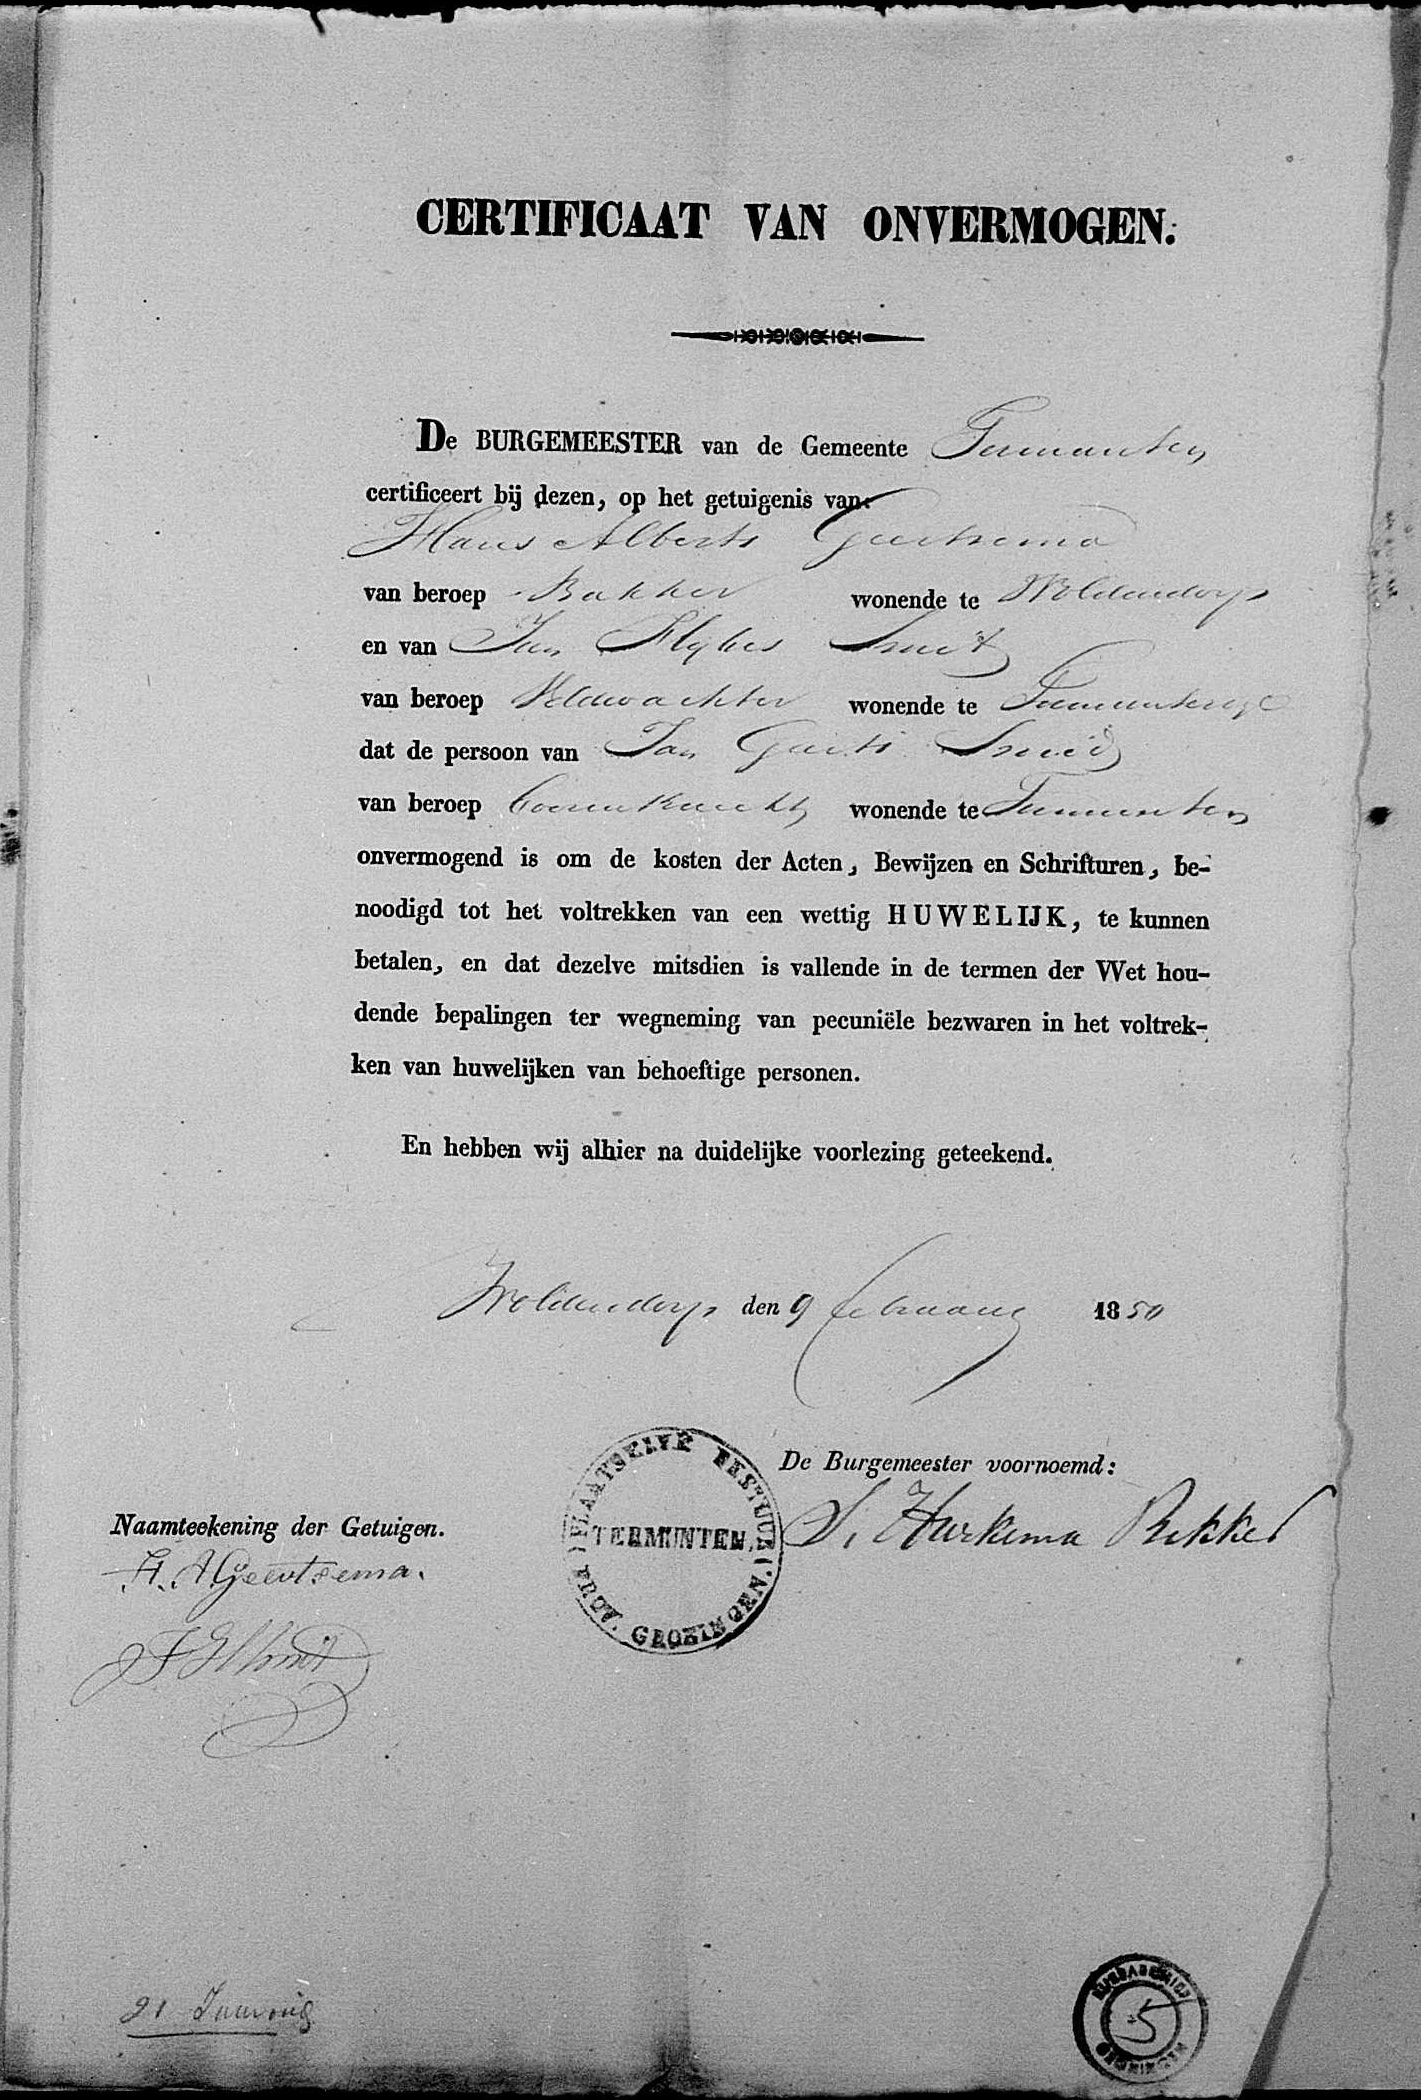 CERTIFICAAT VAN ONVERMOGEN.
De BURGEMEESTER van de Gemeente Termunten
certificeert bij dezen, op het getuigenis van:
Hans Alberts Geertsema
van beroep Bakker wonende te Woldendorp
en van Jan Smit
van beroep Veldwachter wonende te Termunterzijl
dat de persoon van Jan Geerts Smid
van beroep Boerenknecht wonende te Termunten
onvermogend is om de kosten der Acten, Bewijzen en Schrifturen, be-
noodigd tot het voltrekken van een wettig HUWELIJK, te kunnen
betalen, en dat dezelve mitsdien is vallende in de termen der Wet hou-
dende bepalingen ter wegneming van pecuniële bezwaren in het voltrek-
ken van huwelijken van behoeftige personen.
En hebben wij alhier na duidelijke voorlezing geteekend.
Woldendorp den 9 februarij 1850
De Burgemeester voornoemd:
S. Harkema Bekker
PLAATSELYK BESTUUR
TERMUNTEN.
(PROV. GRONINGEN.)
Naamteekening der Getuigen.
H. A. Geertsema.
21 Januarij
RIJKSARCHIEF
5
GRONINGEN